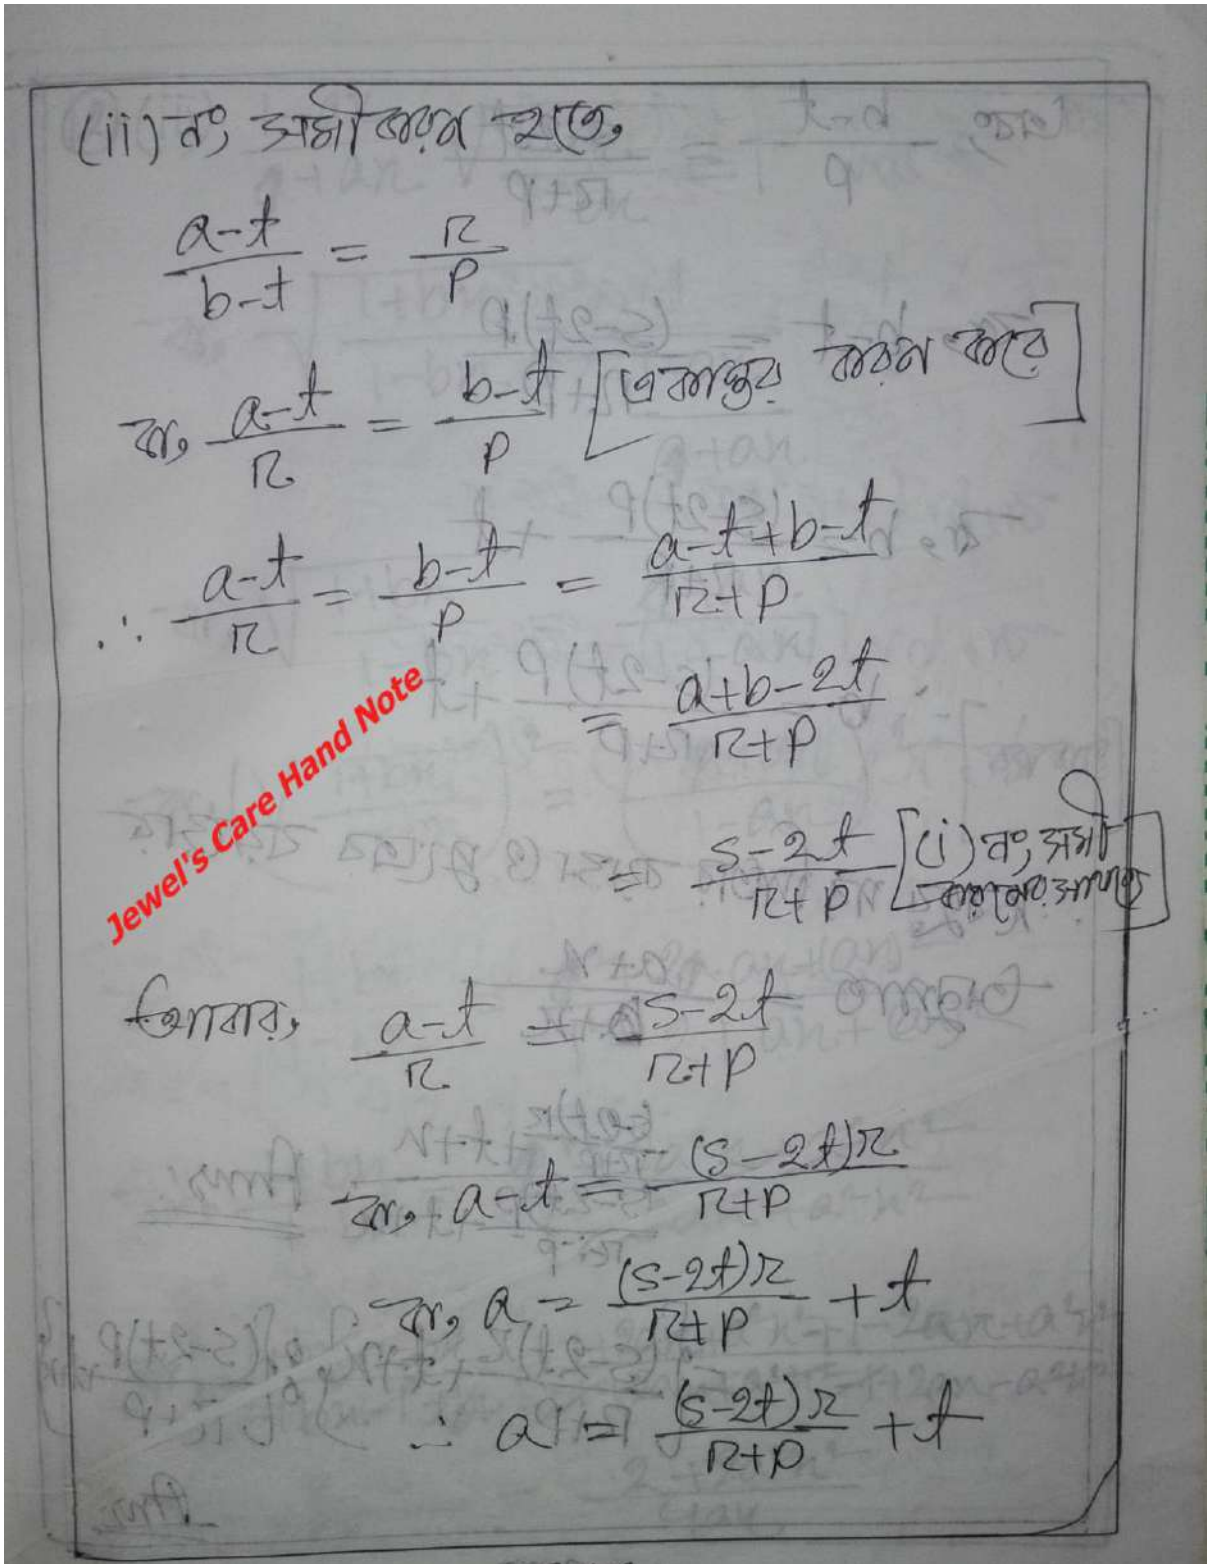 (ii) নং সমীকরণ হতে,
a-t/b-t = r/p
বা, a-t/r = b-t/p [একান্তর করণ করে]
∴ a-t/r = b-t/p = a-t+b-t/r+p
= a+b-2t/r+p
= s-2t/r+p [(i) নং সমীকরণের সাহায্যে]
Jewel's Care Hand Note
আবার, a-t/r = s-2t/r+p
বা, a-t = (s-2t)r/r+p
বা, a = (s-2t)r/r+p + t
∴ a = (s-2t)r/r+p + t